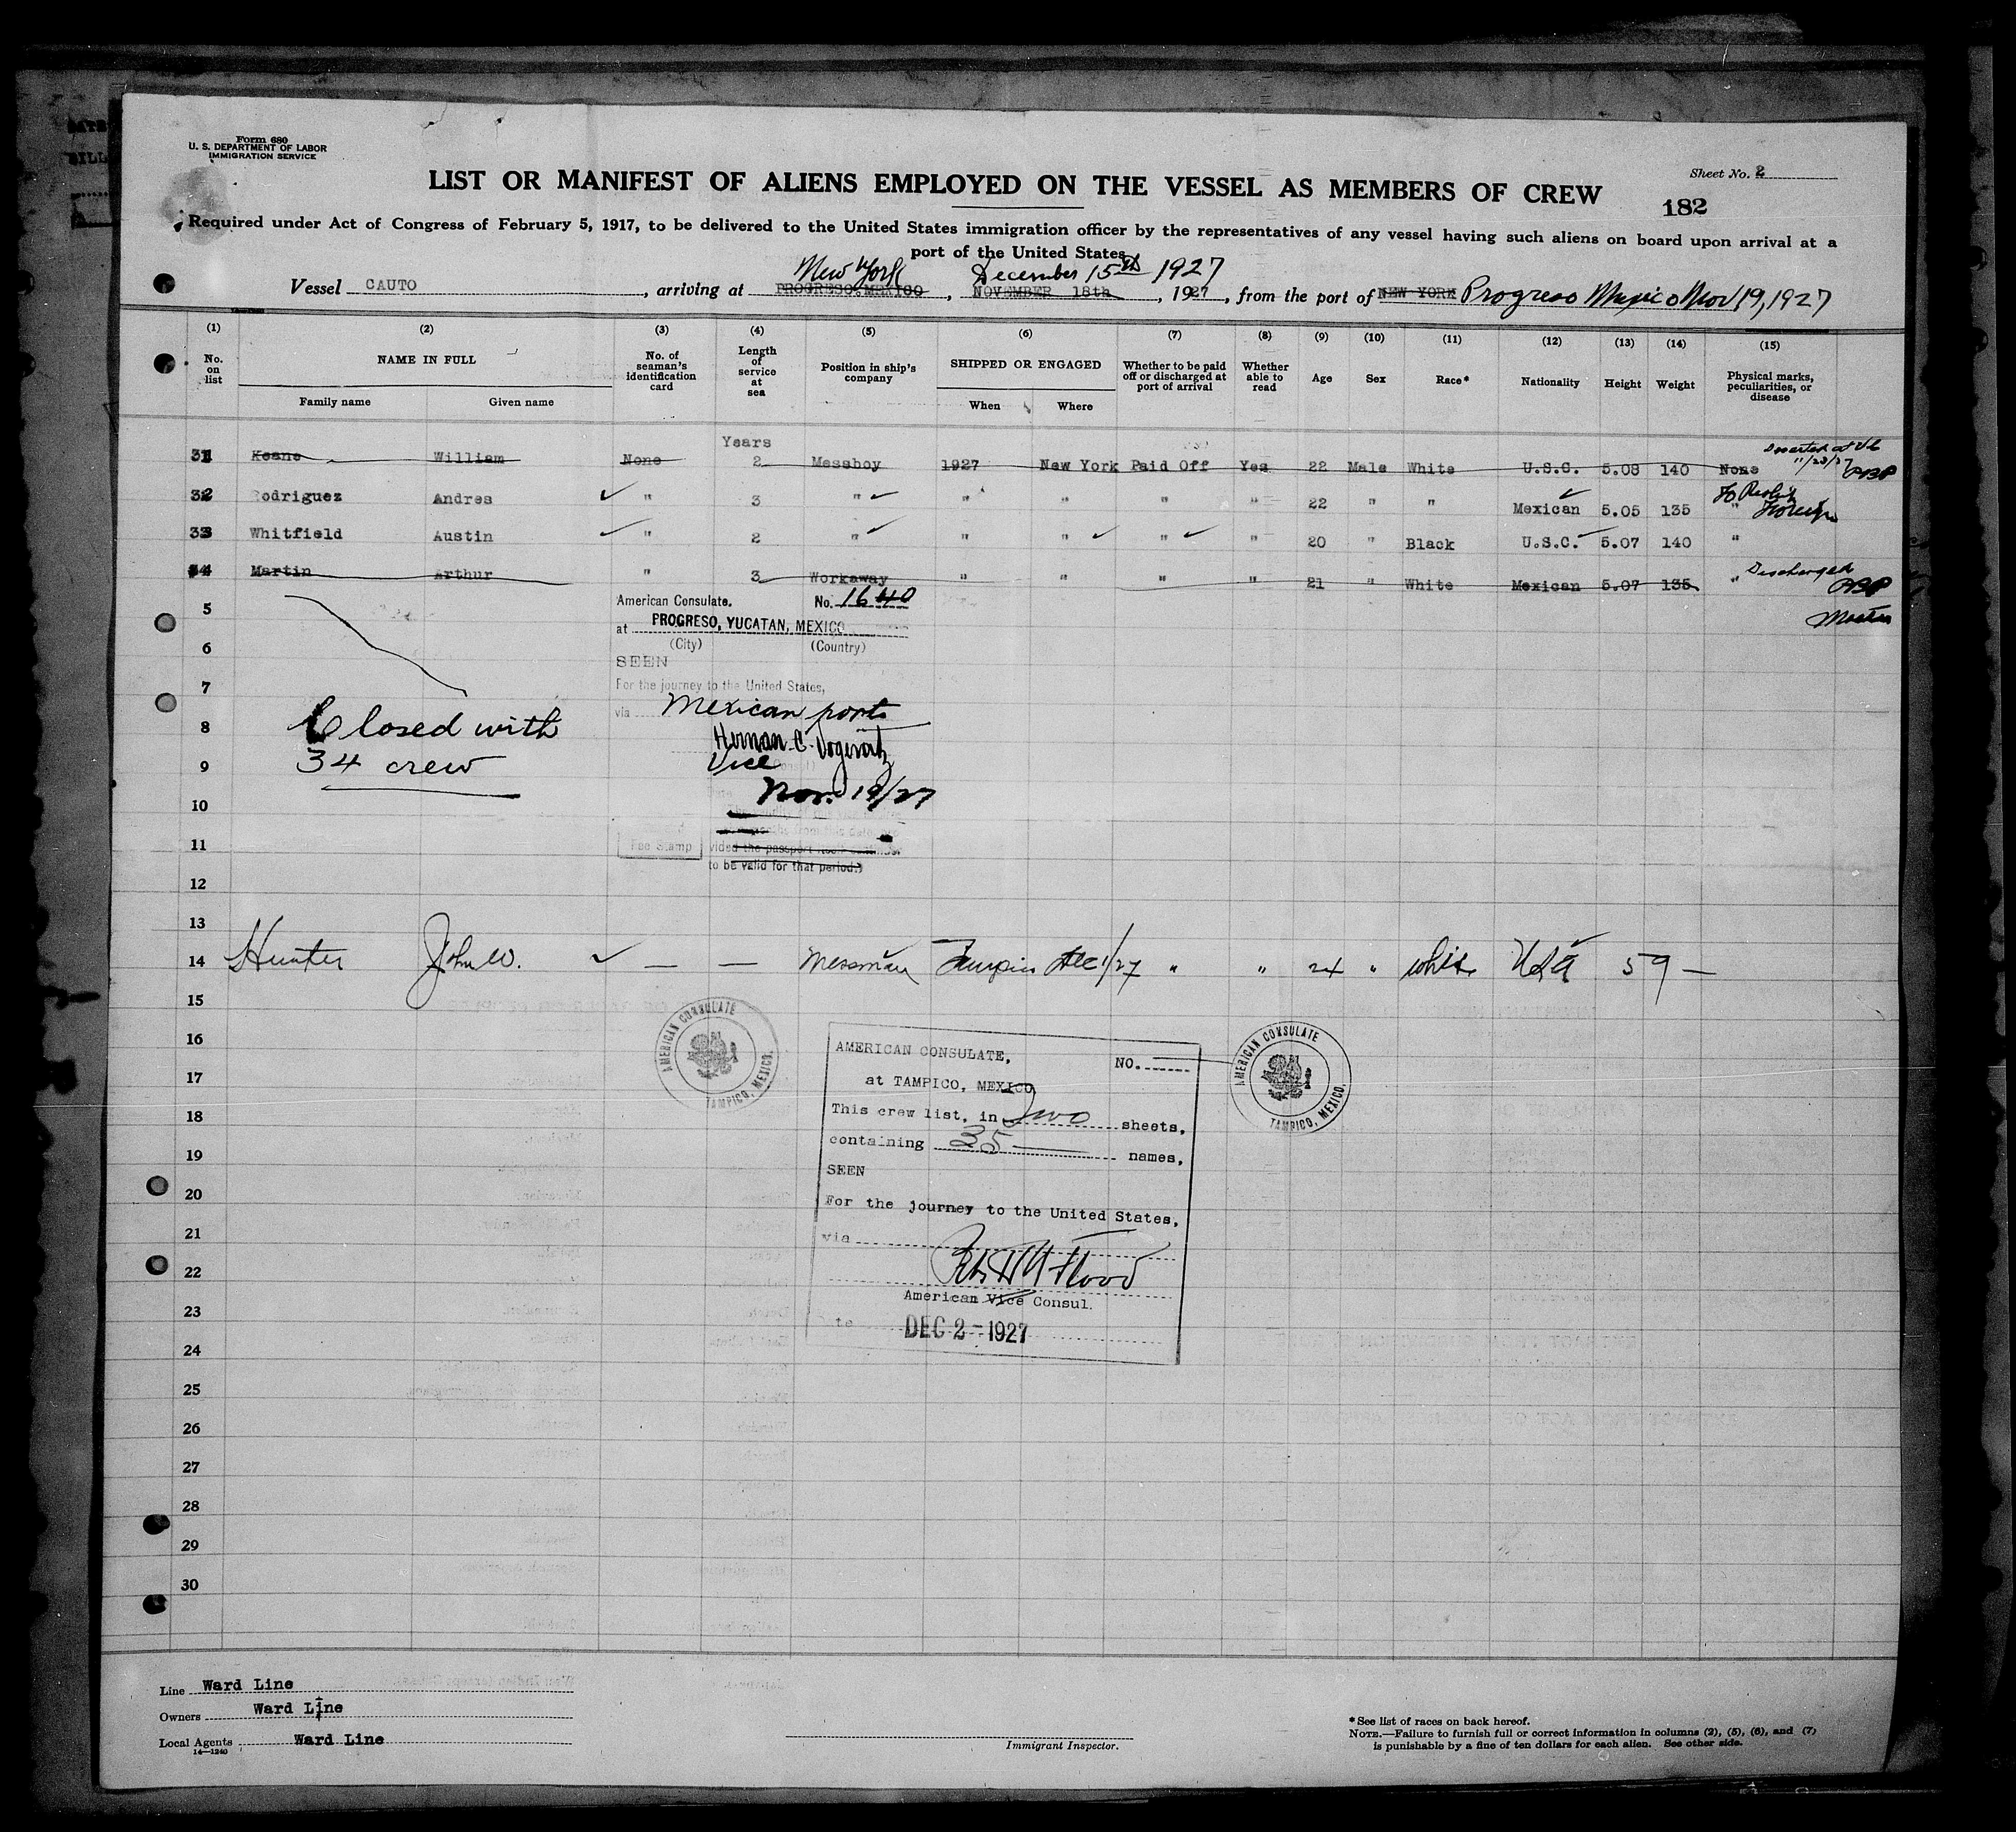 Form 680
U. S. DEPARTMENT OF LABOR
IMMIGRATION SERVICE
Sheet No. 2
LIST OR MANIFEST OF ALIENS EMPLOYED ON THE VESSEL AS MEMBERS OF CREW
182
Required under Act of Congress of February 5, 1917, to be delivered to the United States immigration officer by the representatives of any vessel having such aliens on board upon arrival at a
port of the United States
New York December 15th 1927
Vessel CAUTO, arriving at PROGRESO.MEXICO, NOVEMBER 18th, 1927, from the port of NEW YORK Progreso Mexico Nov 19, 1927
(1) (2) (3) (4) (5) (6) (7) (8) (9) (10) (11) (12) (13) (14) (15)
No. on list
NAME IN FULL
Family name
Given name
No. of seaman's identification card
Length of service at sea
Position in ship's company
SHIPPED OR ENGAGED
When
Where
Whether to be paid off or discharged at port of arrival
Whether able to read
Age
Sex
Race*
Nationality
Height
Weight
Physical marks, peculiarities, or disease
Years
31 Keane William None 2 Messboy 1927 New York Paid Off Yes 22 Male White U.S.C. 5.08 140 None
11/23/27
32 Rodriguez Andres " 3 " " " " " 22 " " Mexican 5.05 135 "
Foreign
33 Whitfield Austin " 2 " " " " " 20 " Black U.S.C. 5.07 140 "
34 Martin Arthur " 3 Workaway " " " " 21 " White Mexican 5.07 135 " Discharged
Master
5
6
7
8
9
10
11
12
13
American Consulate. No. 1640
at PROGRESO, YUCATAN, MEXICO
(City) (Country)
SEEN
For the journey to the United States,
via Mexican ports
Vice
Nov. 19/27
Fee Stamp
vided the passport
to be valid for that period.)
Closed with
34 crew
14 Hunter John W. — — Messman Tampico Dec 1/27 " " 24 " white USA 5 9 —
15
16
17
18
19
20
21
22
23
24
25
26
27
28
29
30
AMERICAN CONSULATE
TAMPICO, MEXICO.
AMERICAN CONSULATE, NO.
at TAMPICO, MEXICO
This crew list, in Two sheets,
containing 35 names,
SEEN
For the journey to the United States,
via
American Vice Consul.
DEC 2 - 1927
AMERICAN CONSULATE
TAMPICO, MEXICO.
Line Ward Line
Owners Ward Line
Local Agents Ward Line
14—1240
Immigrant Inspector.
*See list of races on back hereof.
NOTE.—Failure to furnish full or correct information in columns (2), (5), (6), and (7)
is punishable by a fine of ten dollars for each alien. See other side.